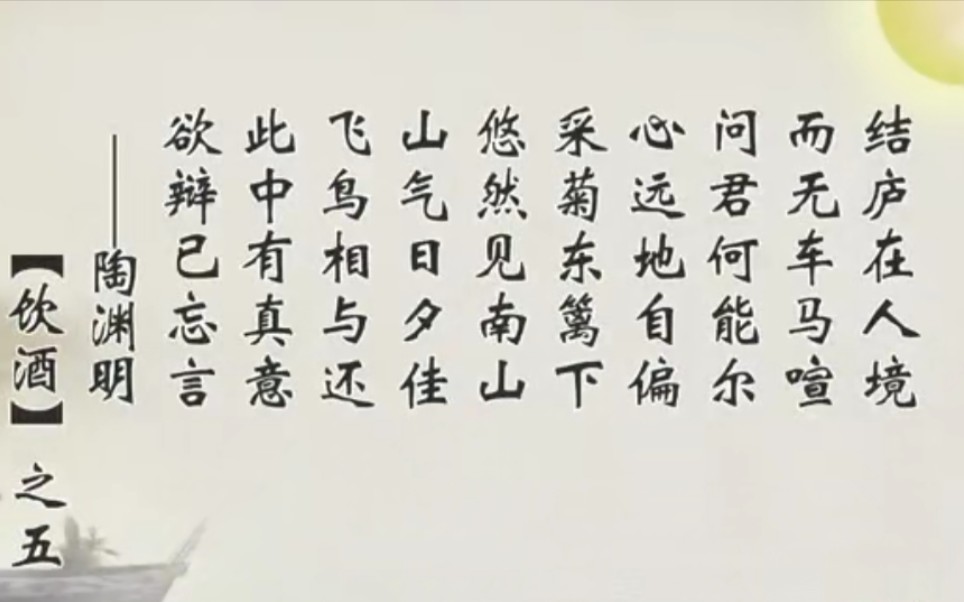 结庐在人境
而无车马喧
问君何能尔
心远地自偏
采菊东篱下
悠然见南山
山气日夕佳
飞鸟相与还
此中有真意
欲辩已忘言
——陶渊明
【饮酒】之五